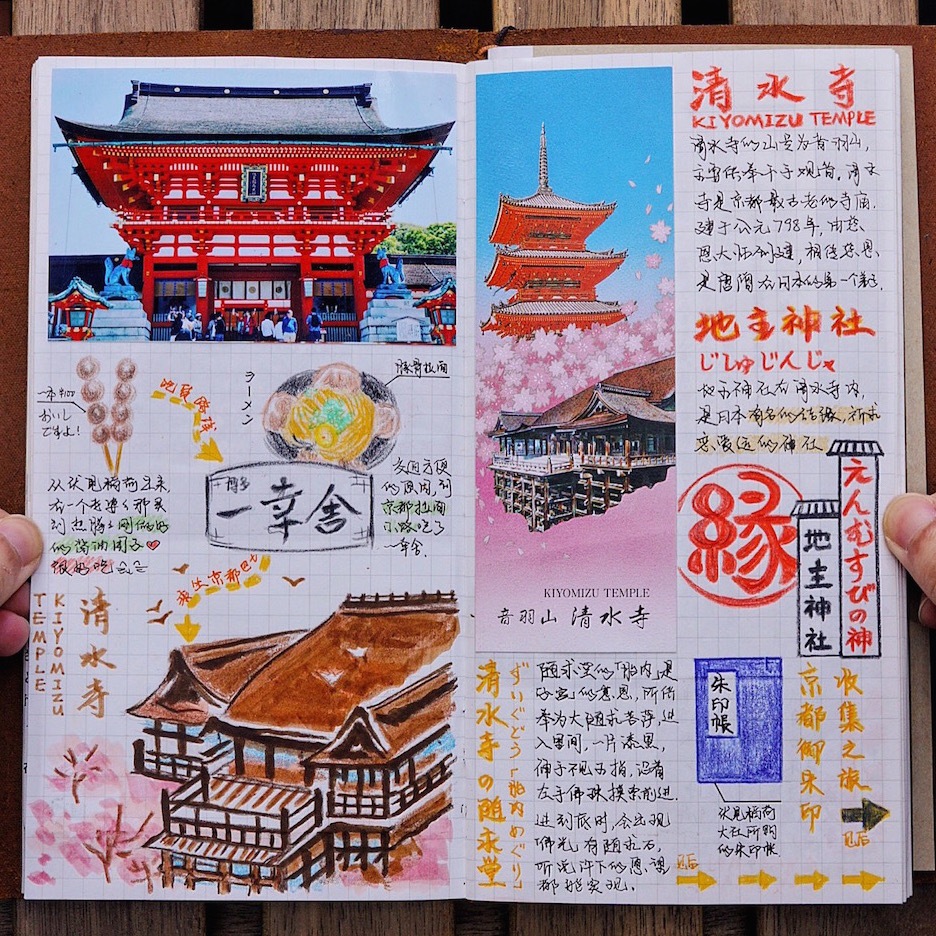 一本¥100
おいし
ですよ!
吃货路線
ラーメン
豚骨拉面
博多
一幸舍
从伏见稲荷出来,
有一个老婆婆那买
到热腾腾刚做好
的酱油团子
很好吃
交通方便
的原因,到
京都拉面
小路吃了
一幸舍.
乘坐京都巴士
清水寺
KIYOMIZU
TEMPLE
KIYOMIZU TEMPLE
音羽山 清水寺
清水寺
KIYOMIZU TEMPLE
清水寺的山号为音羽山,
主要供奉千手观音,清水
寺是京都最古老的寺庙.
建于公元798年,由慈
恩大师创建,相传慈恩
是唐僧在日本的第一个弟子.
地主神社
じしゅじんじゃ
地主神社在清水寺内,
是日本有名的结缘,祈求
恋爱运的神社
縁
えんむすびの神
地主神社
清水寺の随求堂
ずいぐどう「胎内めぐり」
随求堂的「胎内」是
子宫的意思,所供
奉为大随求菩萨,进
入里间,一片漆黑,
伸手不见五指,沿着
左手佛珠摸索前进.
进到底时,会出现
佛光,有随求石,
听说许下的愿望
都能实现.
朱印帳
伏见稲荷
大社所购
的朱印帐
京都御朱印
收集之旅
见后
见后